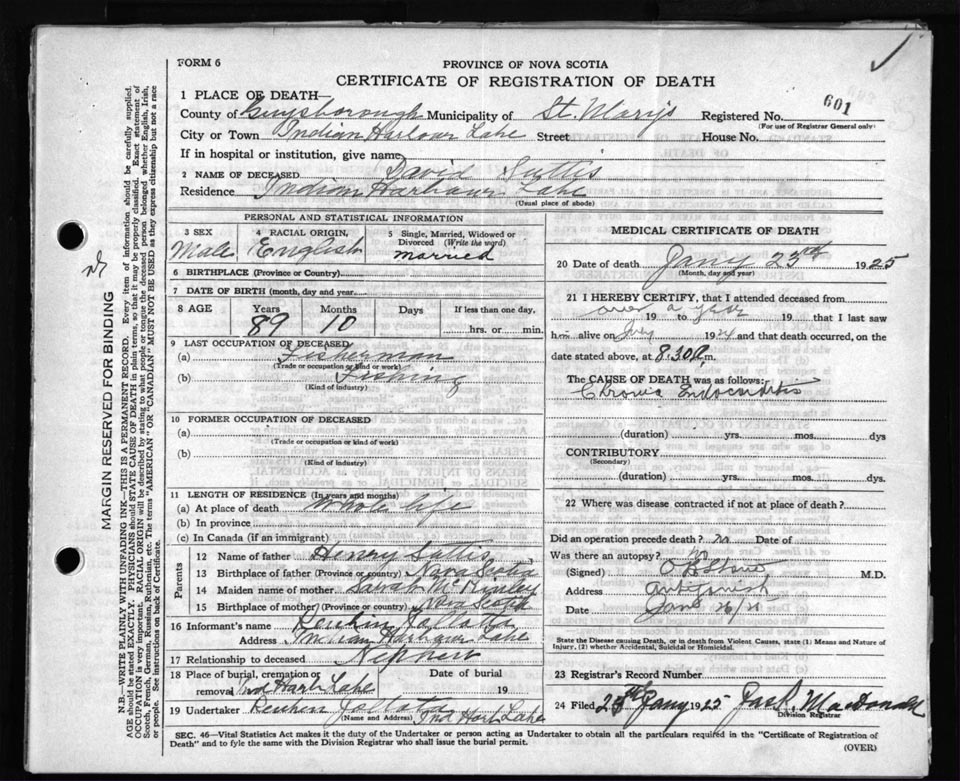 FORM 6
PROVINCE OF NOVA SCOTIA
CERTIFICATE OF REGISTRATION OF DEATH
601
1 PLACE OF DEATH—
County of Guysborough Municipality of St. Mary's Registered No.
(For use of Registrar General only)
City or Town Indian Harbour Lake Street House No.
If in hospital or institution, give name
2 NAME OF DECEASED David Suttis
Residence Indian Harbour Lake
(Usual place of abode)
PERSONAL AND STATISTICAL INFORMATION
3 SEX Male
4 RACIAL ORIGIN, English
5 Single, Married, Widowed or Divorced (Write the word) married
6 BIRTHPLACE (Province or Country)
7 DATE OF BIRTH (month, day and year)
8 AGE Years 89 Months 10 Days If less than one day, hrs. or min.
9 LAST OCCUPATION OF DECEASED
(a) Fisherman
(Trade or occupation or kind or work)
(b) Fishing
(Kind of industry)
10 FORMER OCCUPATION OF DECEASED
(a)
(Trade or occupation or kind of work)
(b)
(Kind of industry)
11 LENGTH OF RESIDENCE (In years and months)
(a) At place of death whole life
(b) In province
(c) In Canada (if an immigrant)
Parents
12 Name of father Henry Suttis
13 Birthplace of father (Province or country) Nova Scotia
14 Maiden name of mother Sarah McKinley
15 Birthplace of mother (Province or country) Nova Scotia
16 Informant's name Reuben
Address Indian Harbour Lake
17 Relationship to deceased Nephew
18 Place of burial, cremation or removal Ind Harb Lake Date of burial 19
19 Undertaker Reuben Ind Harb Lake
(Name and Address)
MEDICAL CERTIFICATE OF DEATH
20 Date of death Jany 23rd 1925
(Month, day and year)
21 I HEREBY CERTIFY, that I attended deceased from
over a year
19 to 19 that I last saw
him alive on 1924 and that death occurred, on the
date stated above, at 8.30 P.m.
The CAUSE OF DEATH was as follows:
Chronic Endocarditis
(duration) yrs. mos. dys
CONTRIBUTORY
(Secondary)
(duration) yrs. mos. dys
22 Where was disease contracted if not at place of death?
Did an operation precede death? no Date of
Was there an autopsy? no
(Signed) M.D.
Address
Date Jan 26/25
State the Disease causing Death, or in death from Violent Causes, state (1) Means and Nature of Injury, (2) whether Accidental, Suicidal or Homicidal.
23 Registrar's Record Number
24 Filed Jany 1925 Jas. MacDonald
Division Registrar
SEC. 46—Vital Statistics Act makes it the duty of the Undertaker or person acting as Undertaker to obtain all the particulars required in the "Certificate of Registration of
Death" and to fyle the same with the Division Registrar who shall issue the burial permit.
(OVER)
MARGIN RESERVED FOR BINDING
N.B.—WRITE PLAINLY WITH UNFADING INK—THIS IS A PERMANENT RECORD. Every item of information should be carefully supplied.
AGE should be stated EXACTLY. PHYSICIANS should STATE CAUSE OF DEATH in plain terms, so that it may be properly classified. Exact statement of
OCCUPATION is very important. RACIAL ORIGIN will be described by stating to what people or tongue the deceased person belonged whether English, Irish,
Scotch, French, German, Russian, Ruthenian, etc. The terms "AMERICAN" OR "CANADIAN" MUST NOT BE USED as they express citizenship but not a race
or people. See instructions on back of Certificate.